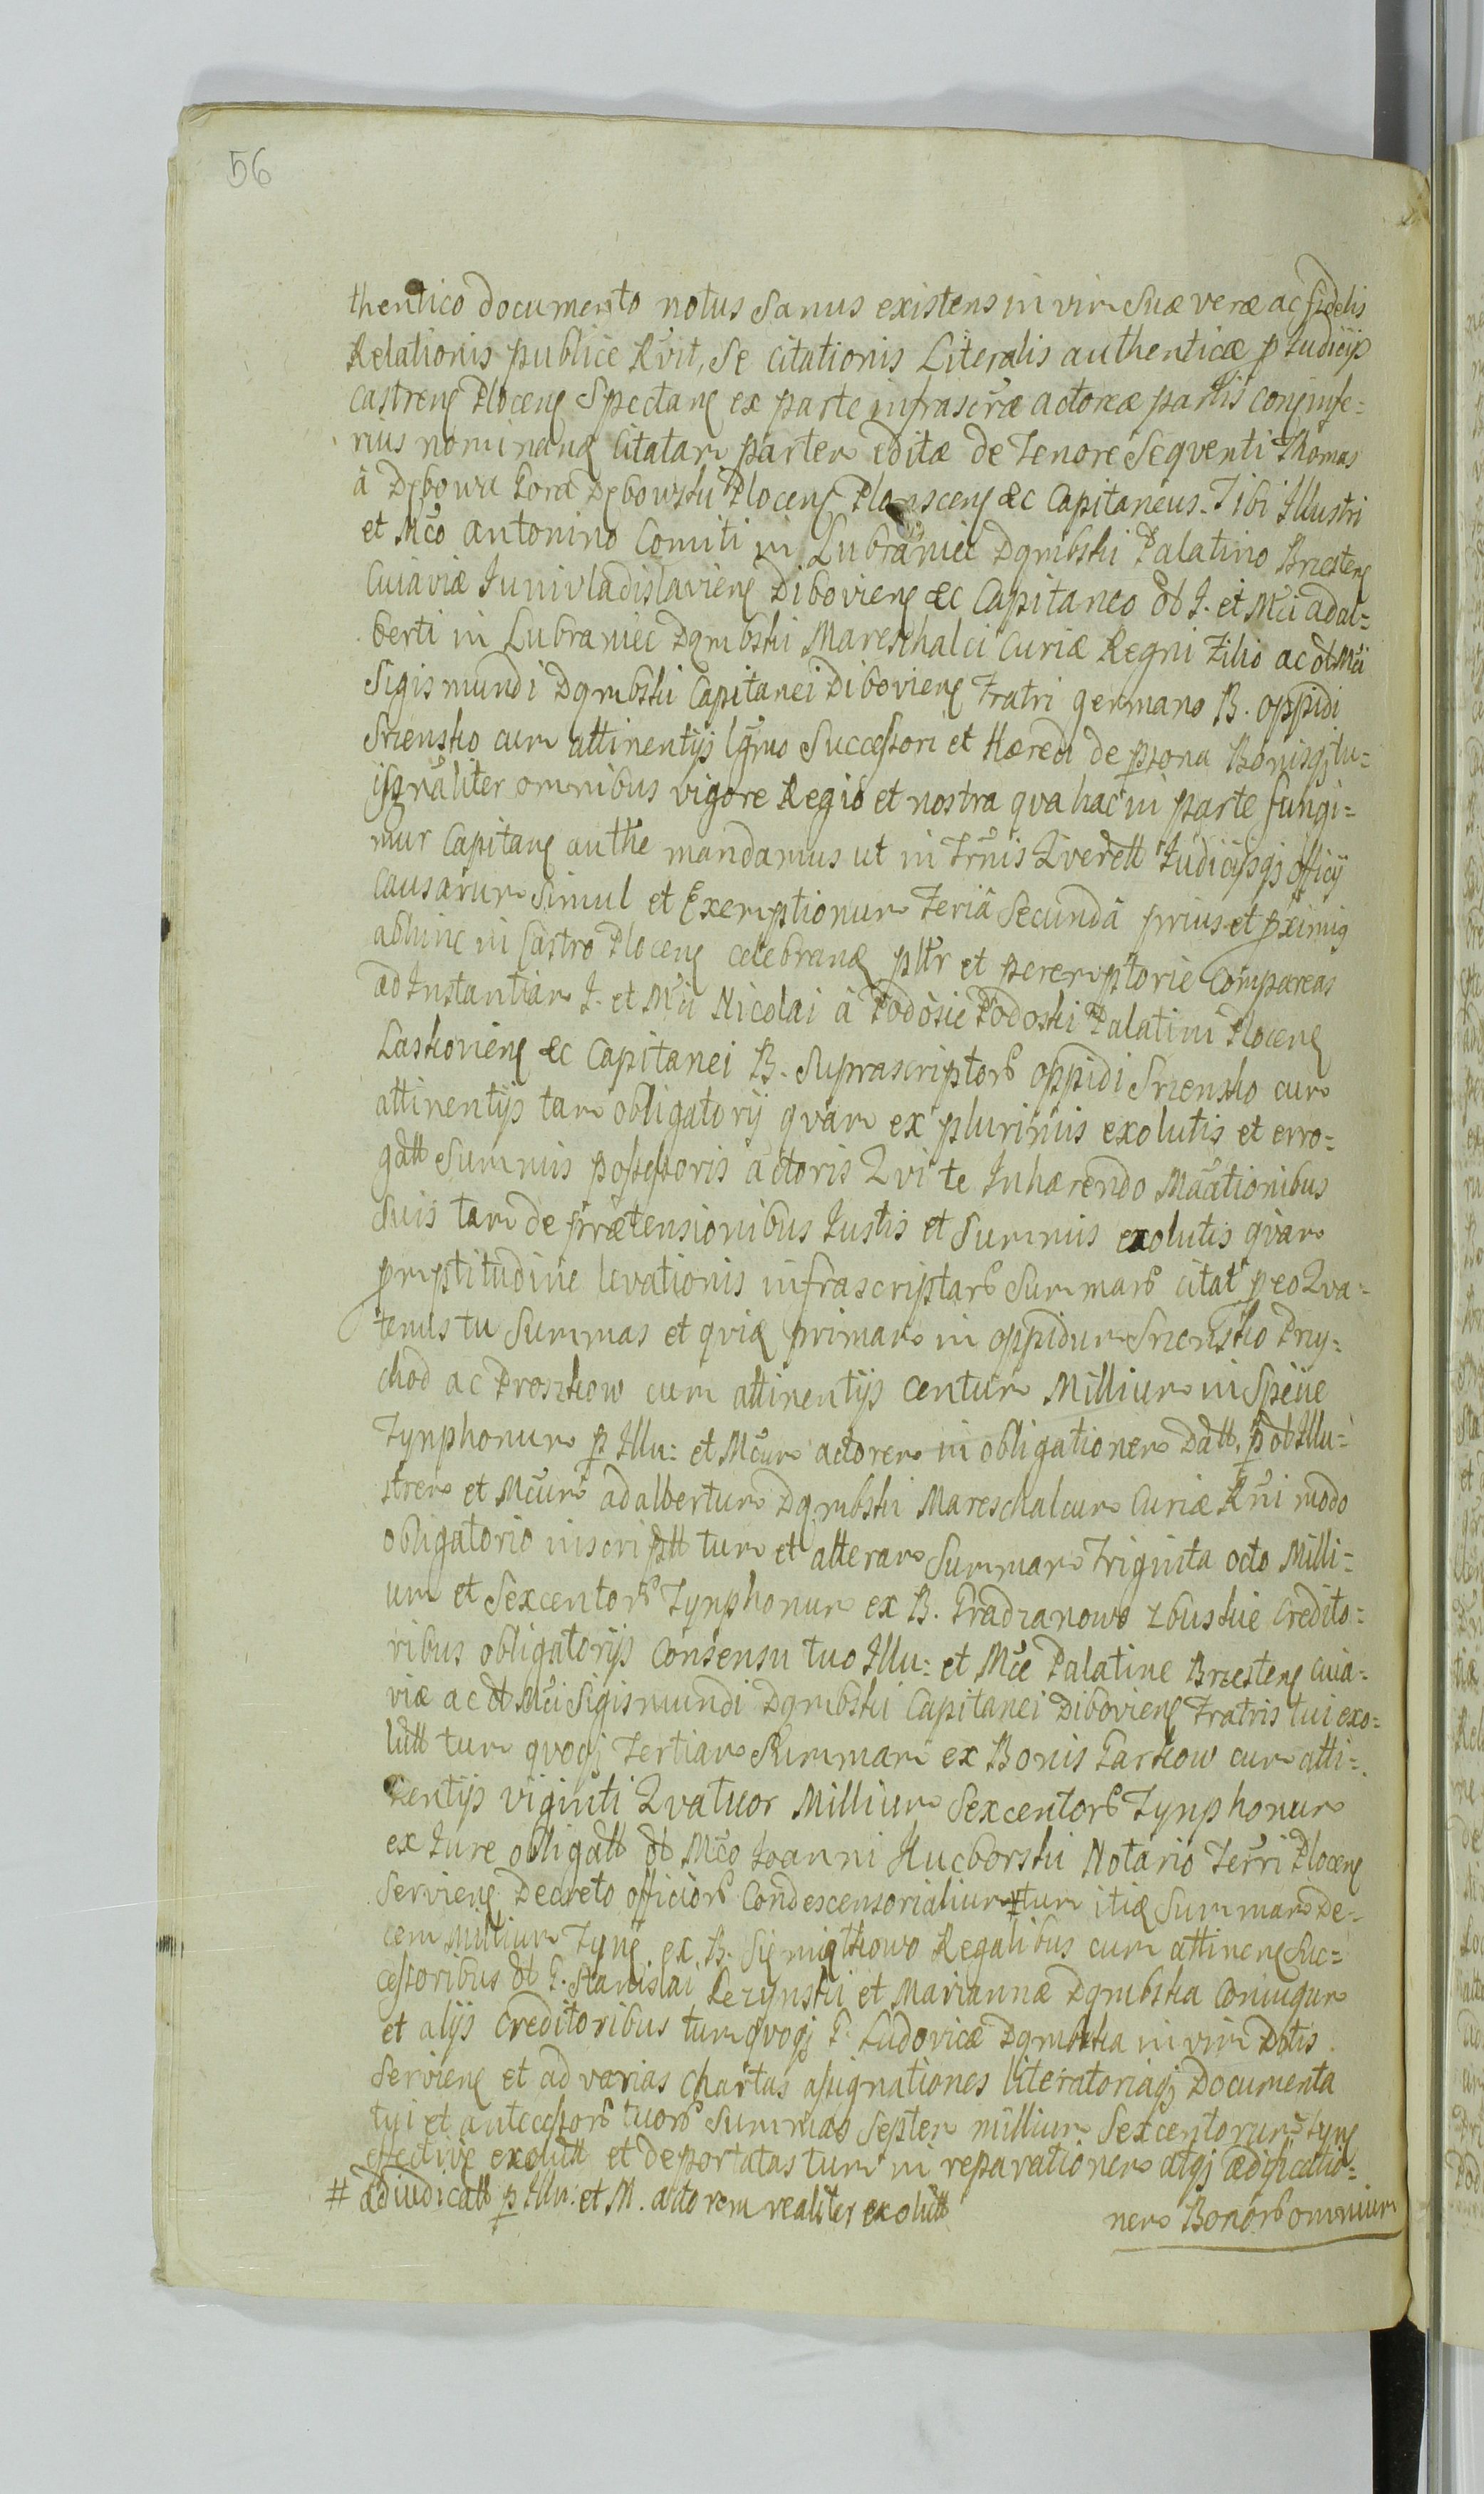 56
thentico documento notus Sanus existens in vim Suæ veræ ac fidelis
Relationis publice Rvit, Se Citationis Literalis authenticæ p Judicijs
castren Plocen Spectan ex parte infrascræ actoreæ partis contra infe=
rius nominan Citatam partem editæ de Tenore Seqventi Thomas
à Dębowa Gora Dębowski Plocen Plonscen &c Capitaneus. Tibi Illustri
et Mco Antonino Comiti in Lubraniec Dąmbski Palatino Brzesten
Cuiaviæ Junivladislavien Dibovien &c Capitaneo ol I. et Mci Adal=
berti in Lubraniec Dąmbski Mareschalci Curiæ Regni Filio ac ol Mci
Sigismundi Dąmbski Capitanei Dibovien Fratri germano B. oppidi
Srzensko cum attinentijs lgmo Successori et Hæredi de psona Bonisqj tu=
is gnaliter omnibus vigore Regio et nostra qva hac in parte fungi=
mur Capitan authe mandamus ut in Trnis Qverell Judicijsqj officij
Causarum Simul et Exemptionum Feriâ Secundâ prius et pximis
abhinc in Castro Plocen celebran pltr et peremptorie Compareas
ad Instantiam I. et Mci Nicolai à Podosie Podoski Palatini Plocen
Laskovien &c Capitanei B. Suprascriptor oppidi Srzensko cum
attinentijs tam obligatorij qvam ex plurimis exolutis et erro=
gatt Summis possessoris actoris Qvi te Inhærendo Maationibus
Suis tam de prætensionibus Justis et Summis exolutis qvam
pmptitudine levationis infrascriptar Summar citat peo Qva=
tenus tu Summas et qvid primam in oppidum Srzensko Przy=
chod ac Proszkow cum attinentijs Centum Millium in Specie
Tynphonum p Illu: et Mcum actorem in obligationem Datt, p ol Illu=
strem et Mcum Adalbertum Dąmbski Mareschalcum Curiæ Rni modo
obligatorio inscriptt tum et alteram Summam Triginta octo Milli=
um et Sexcentor Tynphonum ex B. Gradzanowo Zbuskie Credito=
ribus obligatorijs Consensu tuo Illu: et Mce Palatine Brzesten Cuia=
viæ ac ol Mci Sigismundi Dąmbski Capitanei Dibovien Fratris tui exo=
lutt tum qvoqj Tertiam Summam ex Bonis Garkow cum atti=
nentijs viginti Qvatuor Millium Sexcentor Tynphonum
ex Jure obligatt ol Mco Joanni Hucborski Notario Terri Plocen
Servien Decreto officior Condescensorialium # tum itid Summam De=
cem Millium Tyn ex B. Siemiątkowo Regalibus cum attinen Suc=
cessoribus ol G. Stanislai Rezynski et Mariannæ Dąmbska Coniugum
et alijs Creditoribus tum qvoqj G. Ludovicæ Dąmbska in vim Dotis
Servien et ad varias Chartas assignationes literatoriaqj Documenta
tui et antecessor tuor Summas Septem millium Sexcentorum Tyn
effective exolutt et deportatas tum in reparationem atqj ædificatio=
nem Bonor omnium
# adiudicatt p Illu: et M. actorem realiter exolutt